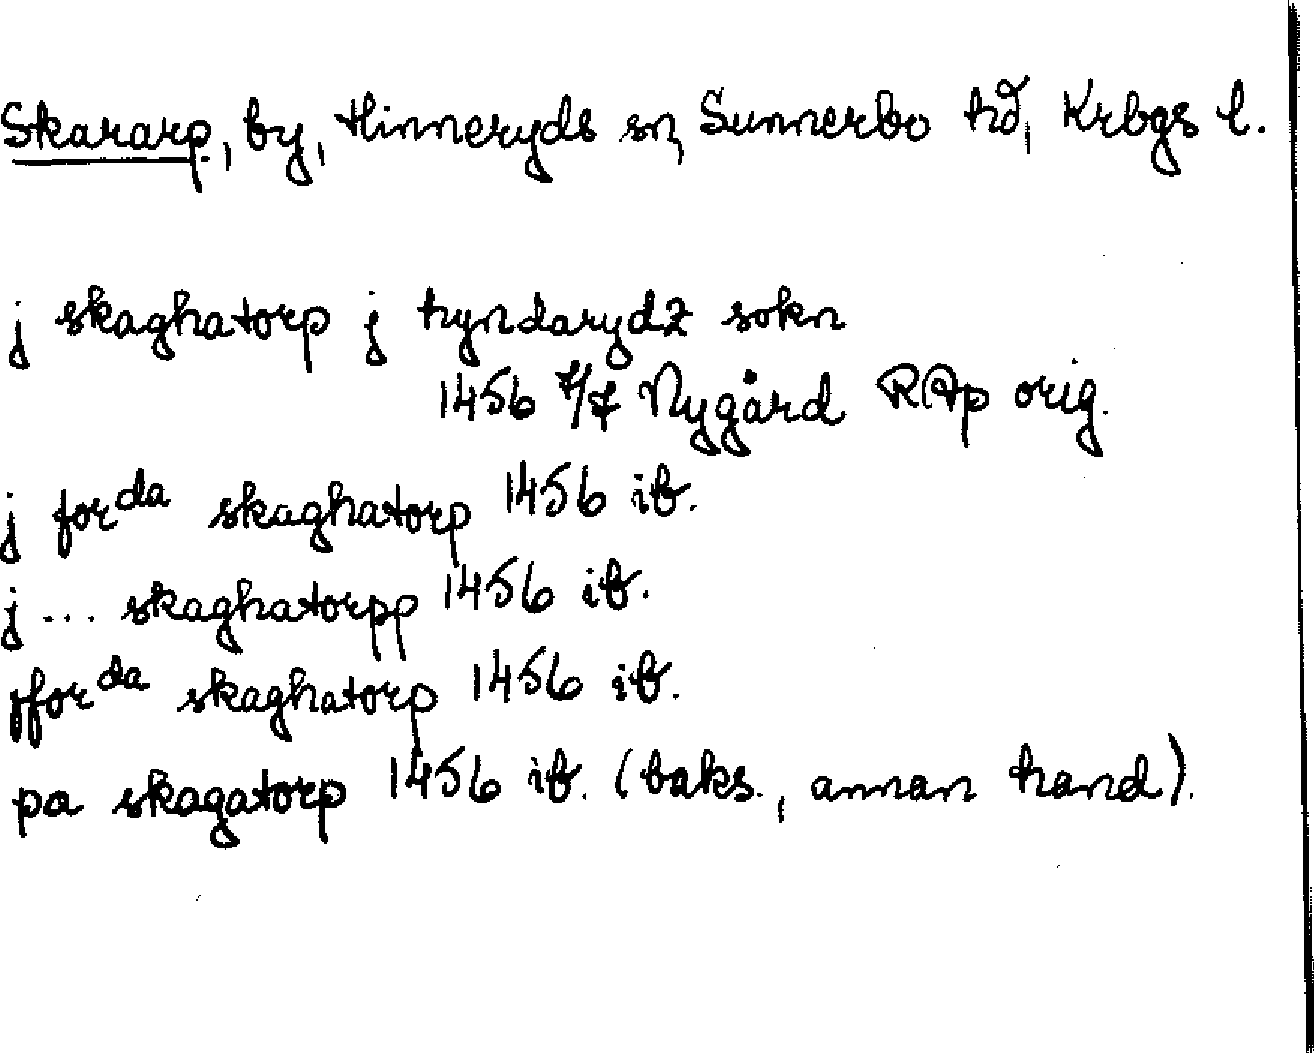 Skararp, by, Hinneryds sn, Sunnerbo hd, Krbgs l.
j skaghatorp j hyndarydz sokn
1456 7/7 Nygård RAp orig.
j forda skaghatorp 1456 ib.
j ... skaghatorpp 1456 ib.
fforda skaghatorp 1456 ib.
pa skagatorp 1456 ib. (baks., annan hand).